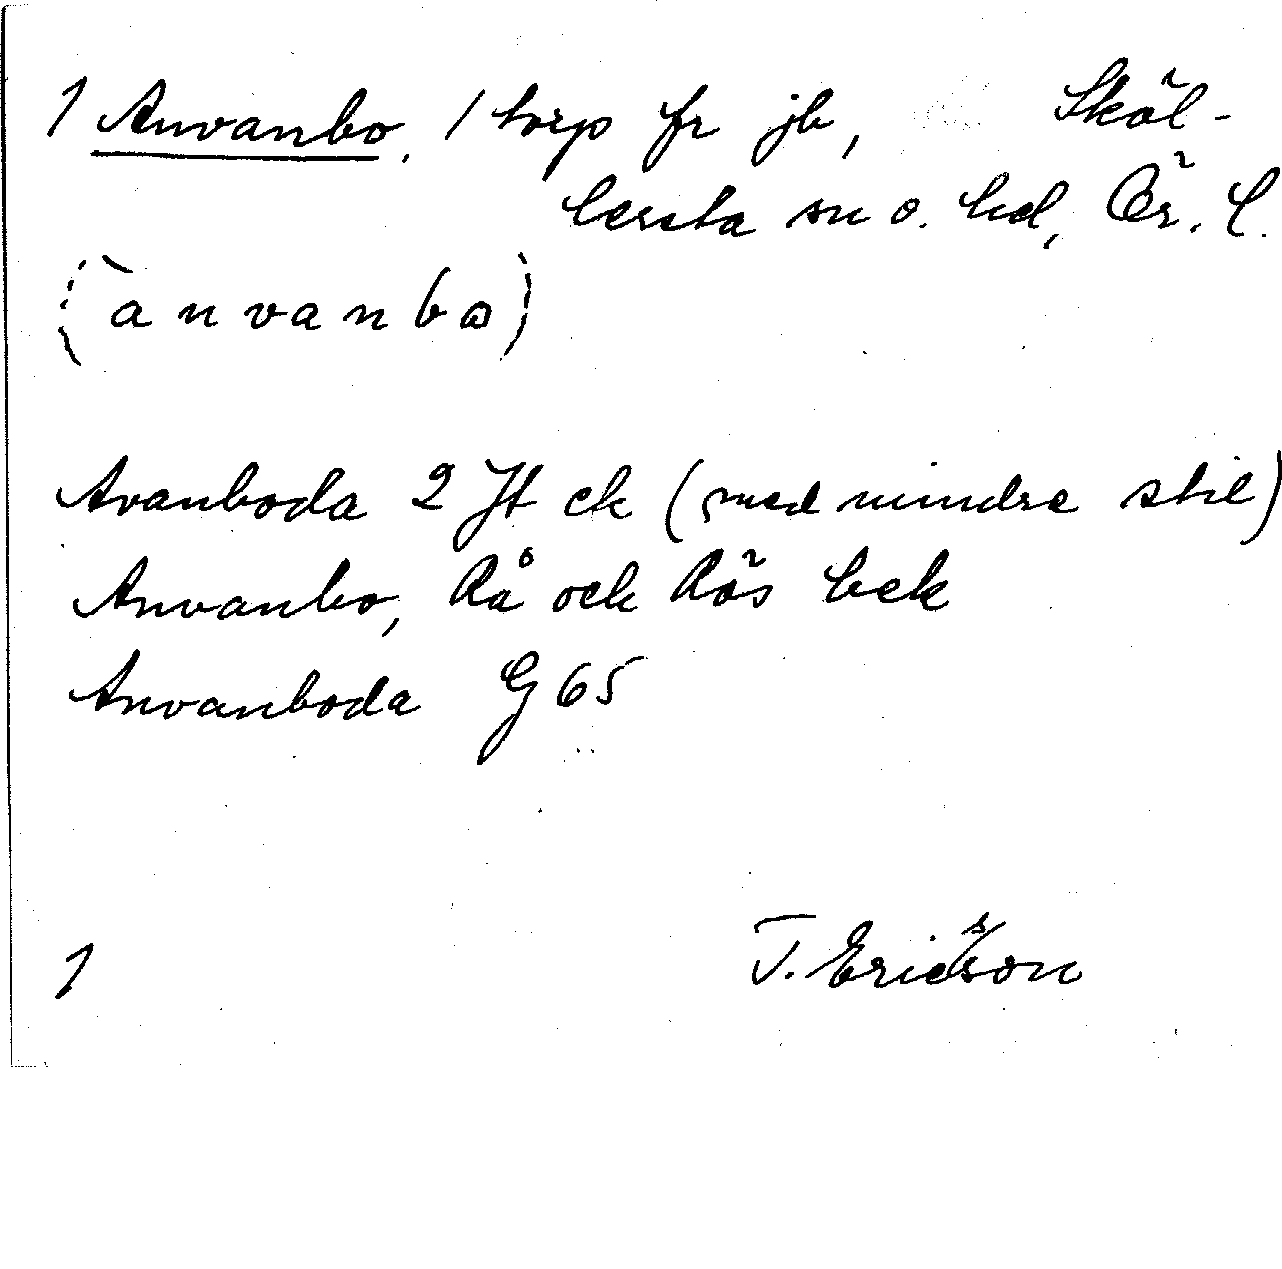 1 Anvanbo, 1 torp fr jb, Sköl-
lersta sn o. hd, Ör. l.
(`anvanbω)
Avanboda 2 Jt ek (med mindre stil)
Anvanbo, Rå och Rös bek
Anvanboda G 65
1 T. Ericsson